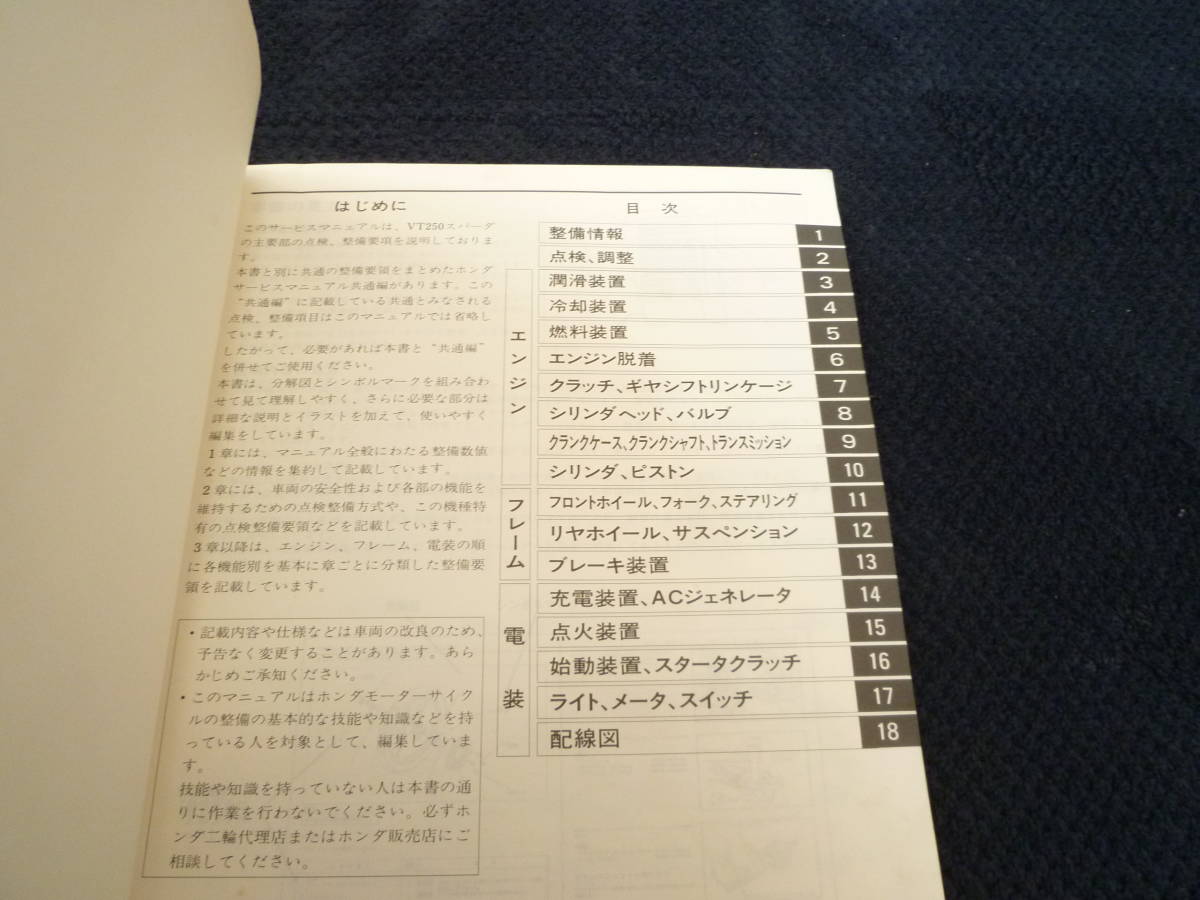 はじめに
このサービスマニュアルは、VT250スパーダ
の主要部の点検、整備要項を説明しておりま
す。
本書と別に共通の整備要領をまとめたホンダ
サービスマニュアル共通編があります。この
“共通編”に記載している共通とみなされる
点検、整備項目はこのマニュアルでは省略し
ています。
したがって、必要があれば本書と“共通編”
を併せてご使用ください。
本書は、分解図とシンボルマークを組み合わ
せて見て理解しやすく、さらに必要な部分は
詳細な説明とイラストを加えて、使いやすく
編集をしています。
1章には、マニュアル全般にわたる整備数値
などの情報を集約して記載しています。
2章には、車両の安全性および各部の機能を
維持するための点検整備方式や、この機種特
有の点検整備要領などを記載しています。
3章以降は、エンジン、フレーム、電装の順
に各機能別を基本に章ごとに分類した整備要
領を記載しています。
・記載内容や仕様などは車両の改良のため、
予告なく変更することがあります。あら
かじめご承知ください。
・このマニュアルはホンダモーターサイク
ルの整備の基本的な技能や知識などを持
っている人を対象として、編集していま
す。
技能や知識を持っていない人は本書の通
りに作業を行わないでください。必ずホ
ンダ二輪代理店またはホンダ販売店にご
相談してください。
目次
整備情報 1
点検、調整 2
エンジン
潤滑装置 3
冷却装置 4
燃料装置 5
エンジン脱着 6
クラッチ、ギヤシフトリンケージ 7
シリンダヘッド、バルブ 8
クランクケース、クランクシャフト、トランスミッション 9
シリンダ、ピストン 10
フレーム
フロントホイール、フォーク、ステアリング 11
リヤホイール、サスペンション 12
ブレーキ装置 13
電装
充電装置、ACジェネレータ 14
点火装置 15
始動装置、スタータクラッチ 16
ライト、メータ、スイッチ 17
配線図 18